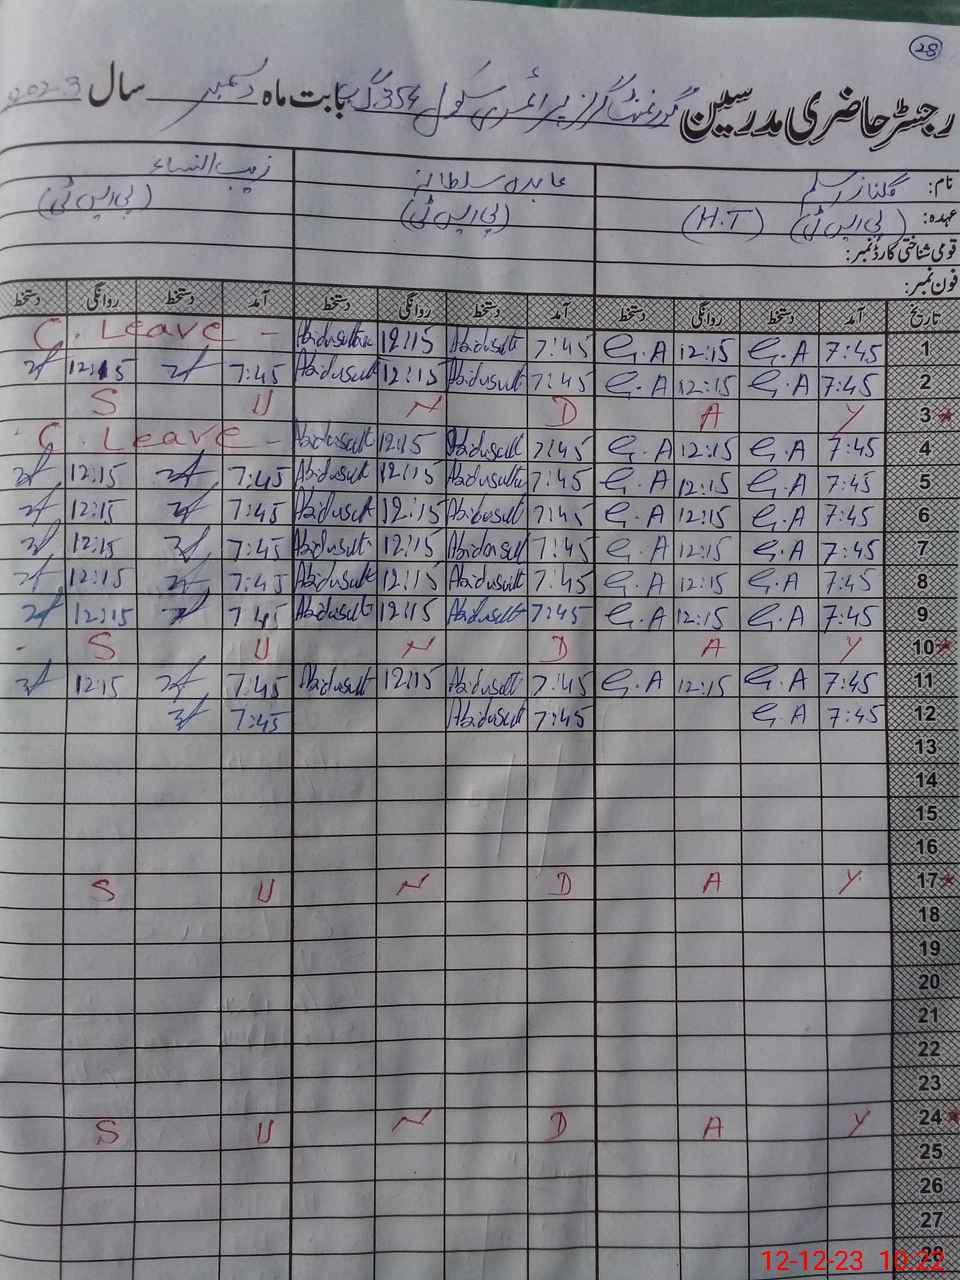 28
رجسٹر حاضری مدرسین گورنمنٹ گرلز پرائمری سکول 354 گ ب بابت ماہ دسمبر سال 2023
نام: گلناز عابدہ سلطانہ زیب النساء
عہدہ: (پی ایس ٹی) (H.T) (پی ایس ٹی) (پی ایس ٹی)
قومی شناختی کارڈ نمبر:
فون نمبر:
تاریخ آمد دستخط روانگی دستخط آمد دستخط روانگی دستخط آمد دستخط روانگی دستخط
1 7:45 G.A 12:15 G.A 7:45 Abidasult 12:15 Abidasultan C. Leave -
2 7:45 G.A 12:15 G.A 7:45 Abidasult 12:15 Abidasult 7:45 12:15
3* S U N D A Y
4 7:45 G.A 12:15 G.A 7:45 Abidasult 12:15 Abidasult C. Leave -
5 7:45 G.A 12:15 G.A 7:45 Abidasult 12:15 Abidasult 7:45 12:15
6 7:45 G.A 12:15 G.A 7:45 Abidasult 12:15 Abidasult 7:45 12:15
7 7:45 G.A 12:15 G.A 7:45 Abidasult 12:15 Abidasult 7:45 12:15
8 7:45 G.A 12:15 G.A 7:45 Abidasult 12:15 Abidasult 7:45 12:15
9 7:45 G.A 12:15 G.A 7:45 Abidasult 12:15 Abidasult 7:45 12:15
10* S U N D A Y
11 7:45 G.A 12:15 G.A 7:45 Abidasult 12:15 Abidasult 7:45 12:15
12 7:45 G.A 7:45 Abidasult 7:45
13
14
15
16
17* S U N D A Y
18
19
20
21
22
23
24* S U N D A Y
25
26
27
28
12-12-23 10:22